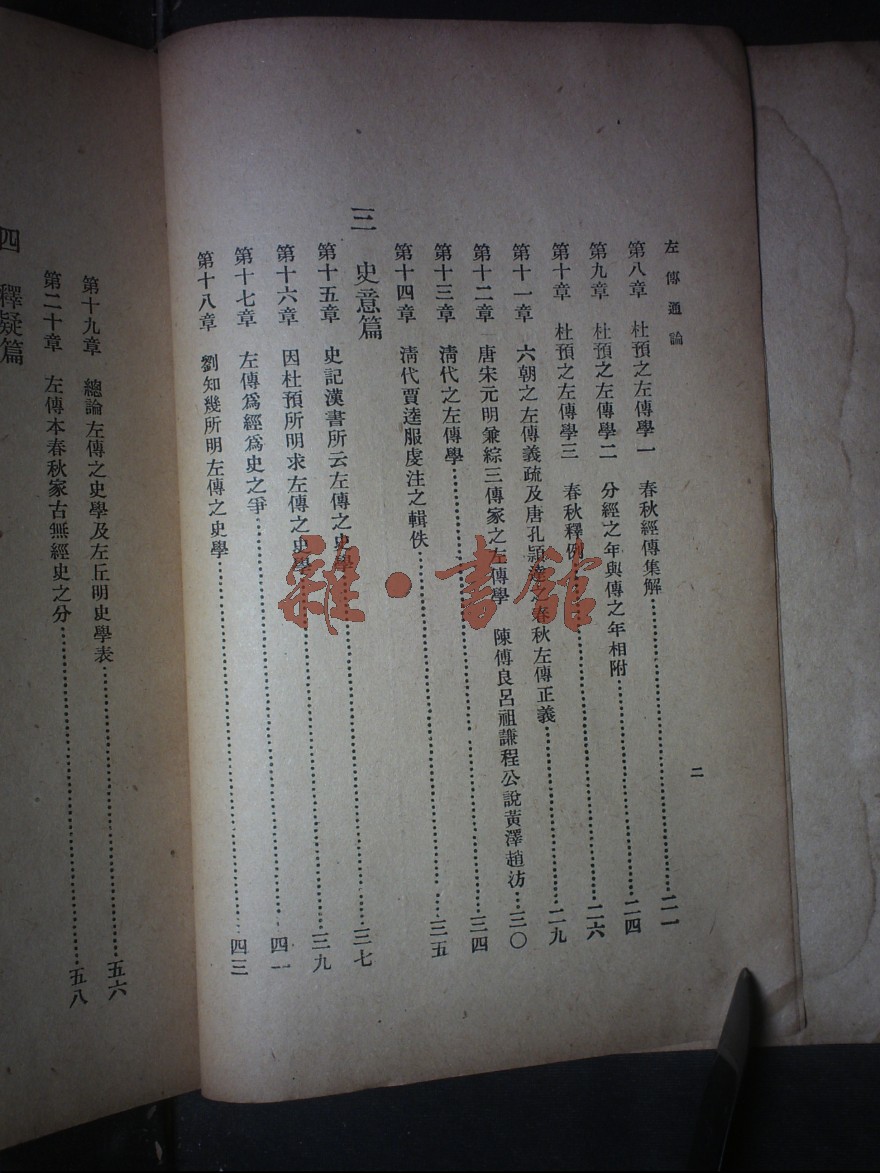 左傳通論
二
第八章 杜預之左傳學一 春秋經傳集解……二一
第九章 杜預之左傳學二 分經之年與傳之年相附……二四
第十章 杜預之左傳學三 春秋釋例……二六
第十一章 六朝之左傳義疏及唐孔穎達之春秋左傳正義……二九
第十二章 唐宋元明兼綜三傳家之左傳學 陳傅良呂祖謙程公說黃澤趙汸……三〇
第十三章 清代之左傳學……三四
第十四章 清代賈逵服虔注之輯佚……三五
三 史意篇
第十五章 史記漢書所云左傳之史學……三七
第十六章 因杜預所明求左傳之史學……三九
第十七章 左傳爲經爲史之爭……四一
第十八章 劉知幾所明左傳之史學……四三
第十九章 總論左傳之史學及左丘明史學表……五六
第二十章 左傳本春秋家古無經史之分……五八
四 釋疑篇
雜·書館